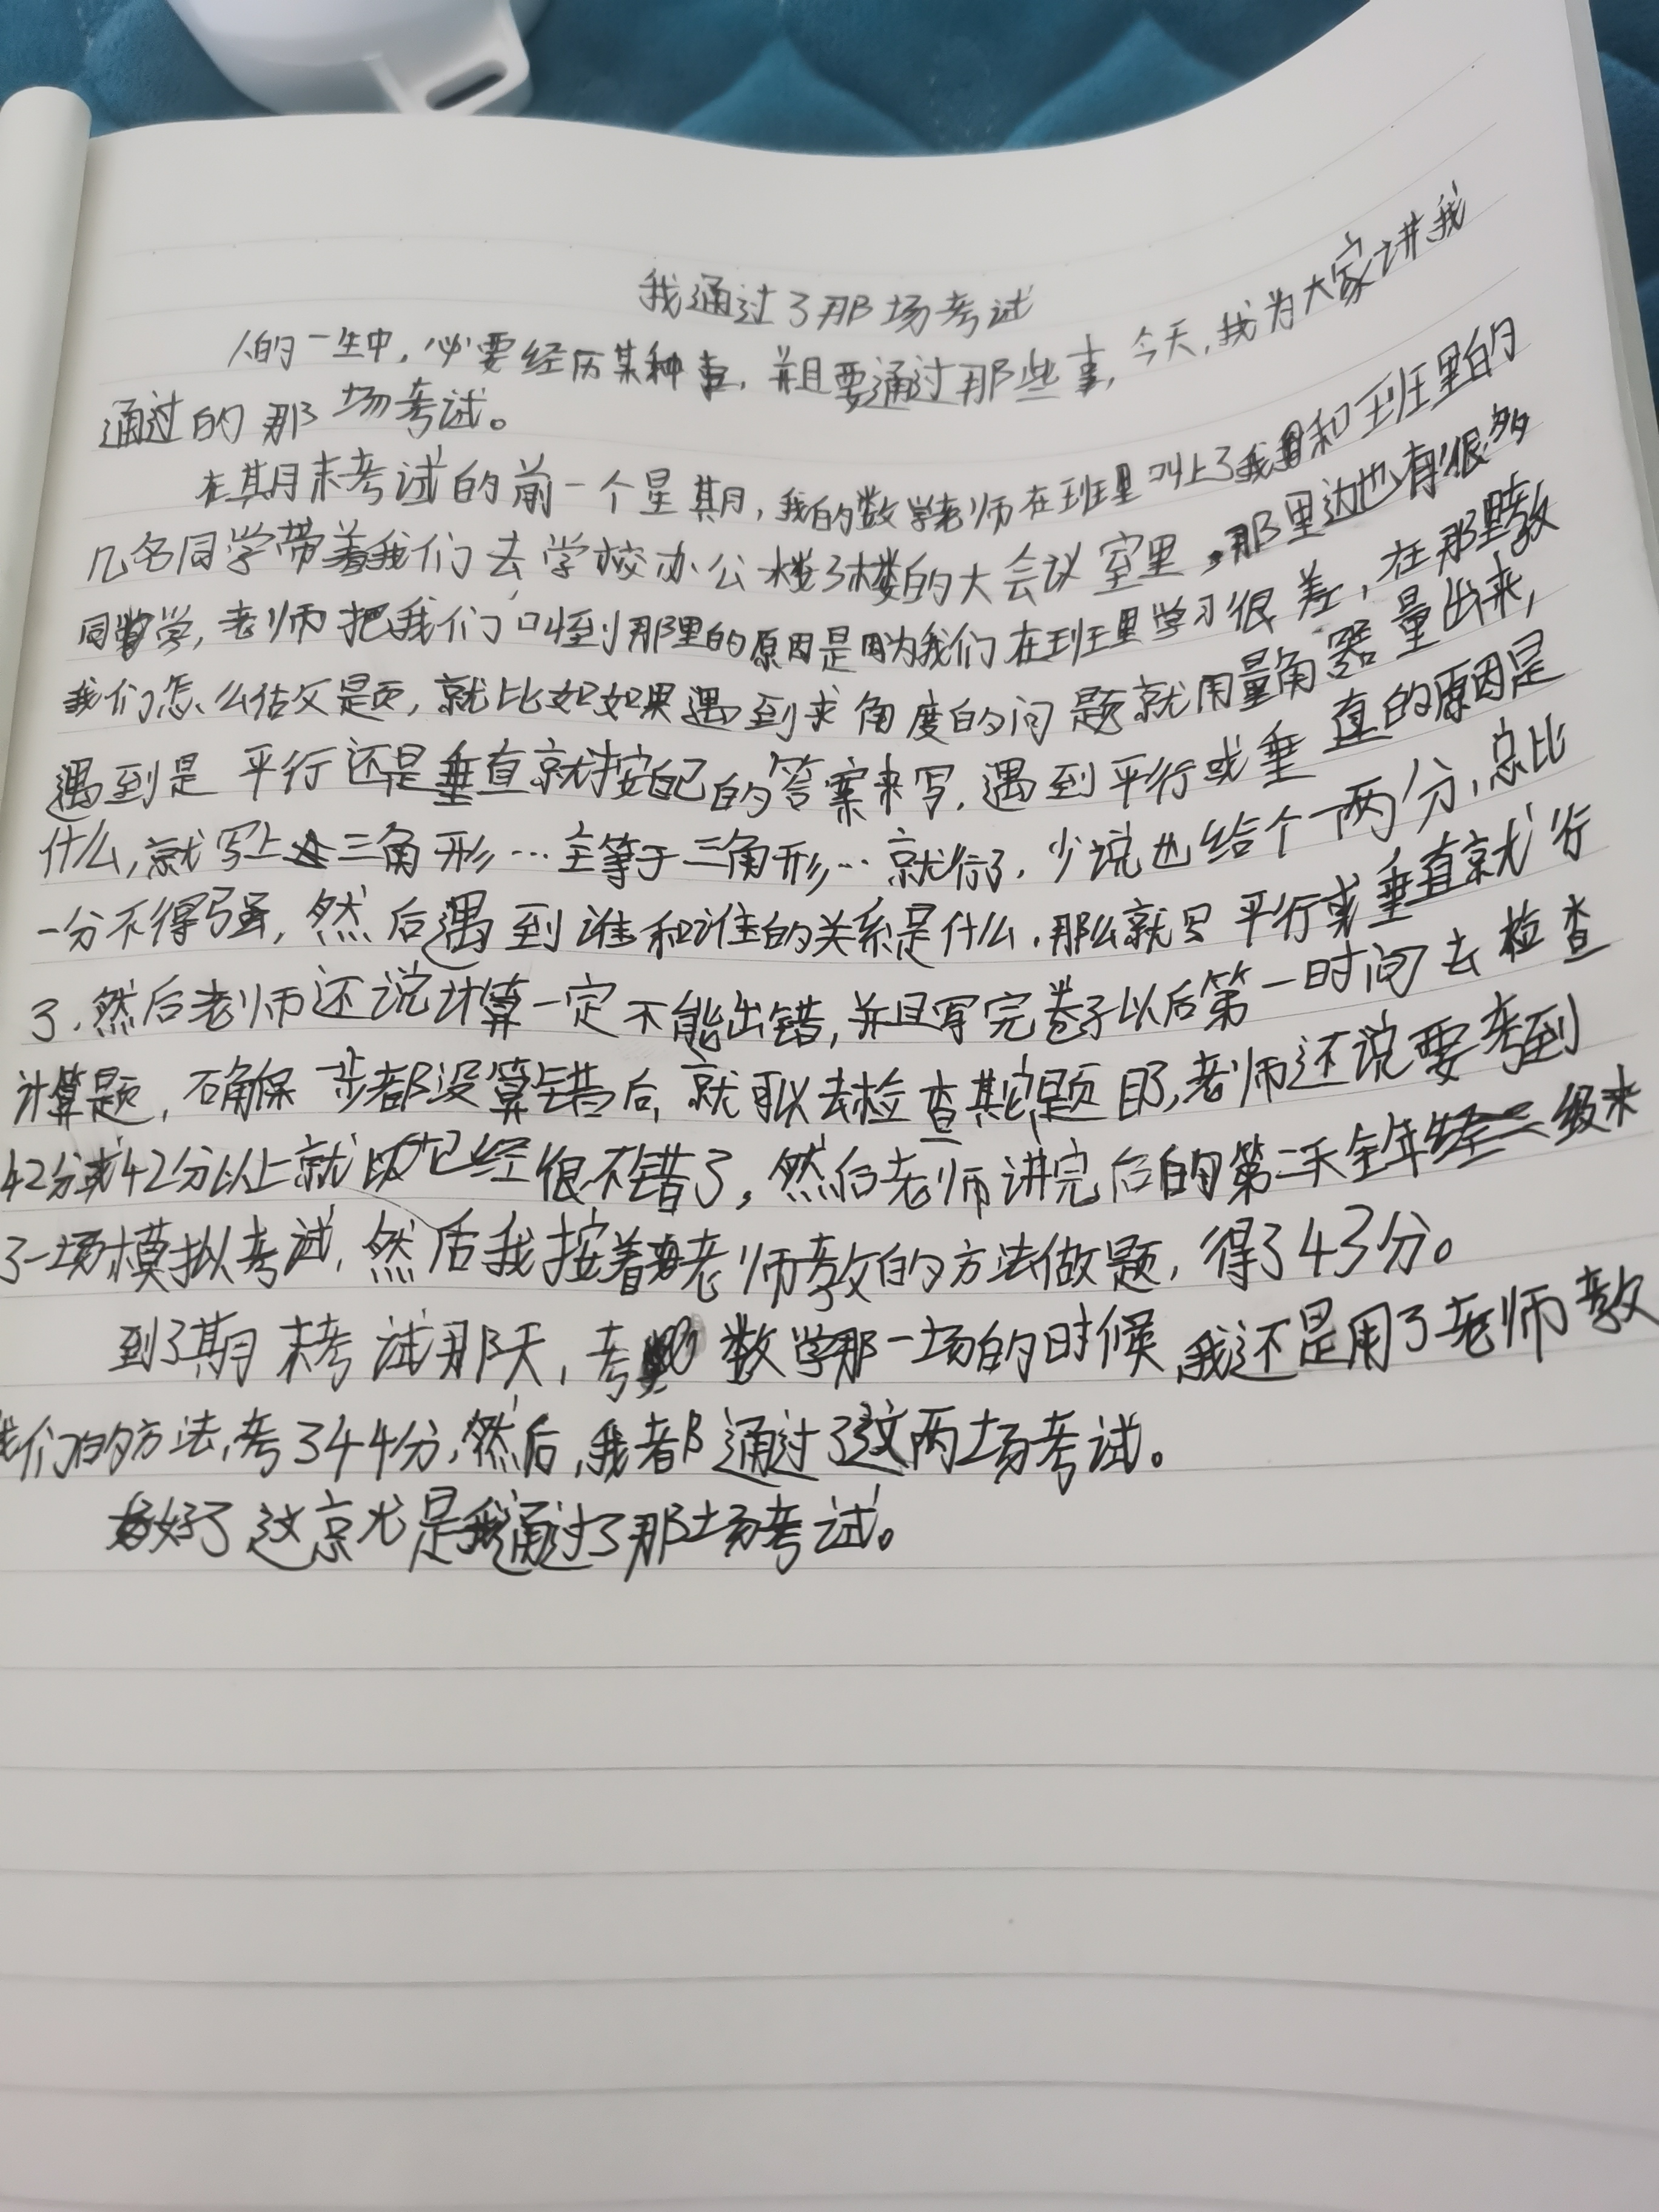 我通过了那场考试
人的一生中，必要经历某种事，并且要通过那些事，今天，我为大家讲我
通过的那场考试。
在期末考试的前一个星期，我的数学老师在班里叫上了我和班里的
几名同学带着我们去学校办公楼3楼的大会议室里，那里边也有很多
同学，老师把我们叫到那里的原因是因为我们在班里学习很差，在那里教
我们怎么估文是页，就比如如果遇到求角度的问题就用量角器量出来，
遇到是平行还是垂直就按自己的答案来写，遇到平行或垂直的原因是
什么，就写上三角形…主等于三角形…就行了，少说也给个一两分，总比
一分不得强，然后遇到谁和谁的关系是什么，那么就只平行或垂直就行
了，然后老师还说计算一定不能出错，并且写完卷子以后第一时间去检查
计算题，确保一步都没算错后，就可以去检查其它题目了，老师还说要考到
42分或42分以上就已经很不错了，然后老师讲完后的第二天全年级来
了一场模拟考试，然后我按着老师教的方法做题，得了43分。
到了期末考试那天，考数学那一场的时候，我还是用了老师教
我们的方法，考了44分，然后，我都通过了这两场考试。
好了这就是我通过了那场考试。